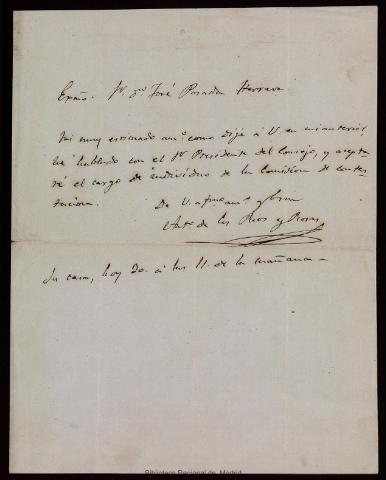 Exmo. Sr. Dn. José Posada Herrera
Mi muy estimado amo. como dije á V. en mi anterior,
he hablado con el Sr. Presidente del Consejo, y acepta-
ré el cargo de individuo de la Comision de contes-
tacion.
De V. afmo. am.
Anto. de los Rios y Rosas
Su casa, hoy 30. á las 11. de la mañana
Biblioteca Regional de Madrid